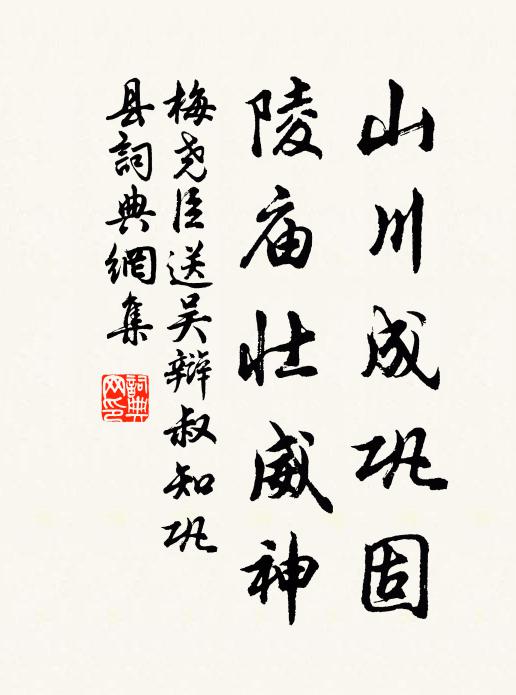 山川成巩固
陵庙壮威神
梅尧臣送吴辩叔知巩
县词典網集
詞典
网印